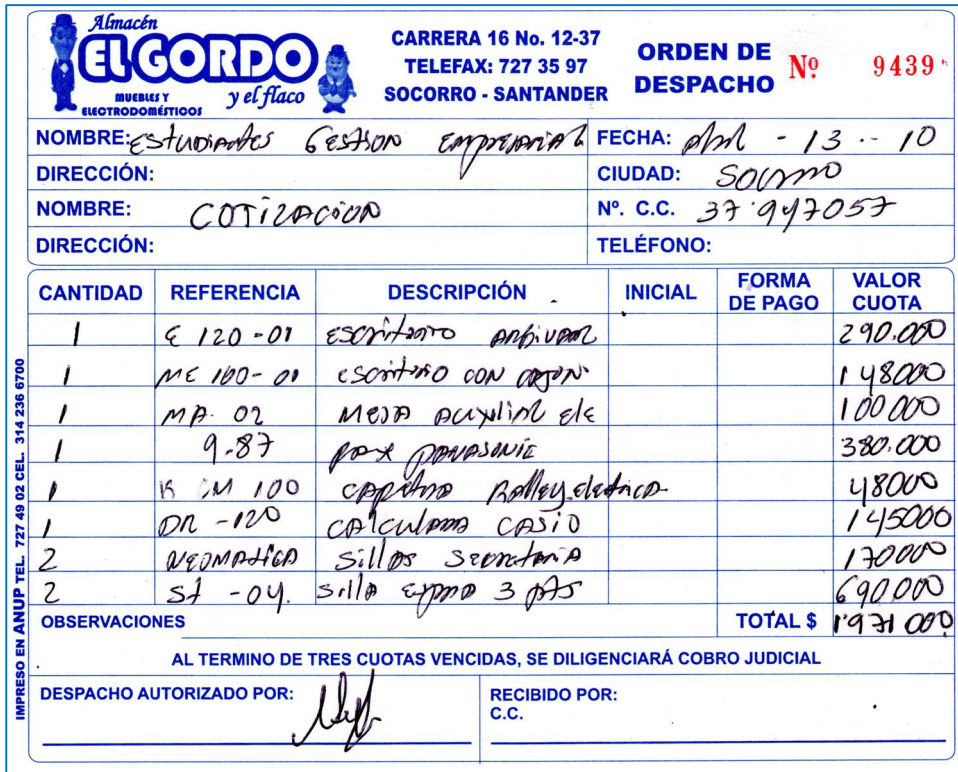 Almacén
EL GORDO
y el flaco
MUEBLES Y
ELECTRODOMÉSTICOS
CARRERA 16 No. 12-37
TELEFAX: 727 35 97
SOCORRO - SANTANDER
ORDEN DE
DESPACHO Nº 9439
NOMBRE: Estudiantes Gestion Empresarial FECHA: Abril - 13 - 10
DIRECCIÓN: CIUDAD: Socorro
NOMBRE: COTIZACION Nº. C.C. 37.947057
DIRECCIÓN: TELÉFONO:
CANTIDAD REFERENCIA DESCRIPCIÓN INICIAL FORMA DE PAGO VALOR CUOTA
1 E 120-01 Escritorio 290.000
1 ME 100-01 escritorio con cajon 148000
1 MA. 02 MESA Auxiliar ele 100000
1 9-87 FAX PANASONIC 380.000
1 100 48000
1 DR-120 CALCULADORA CASIO 145000
2 NEOMATICA Sillas Secretaria 170000
2 SI -04. Silla 3 690.000
OBSERVACIONES TOTAL $ 1.971000
AL TERMINO DE TRES CUOTAS VENCIDAS, SE DILIGENCIARÁ COBRO JUDICIAL
DESPACHO AUTORIZADO POR: RECIBIDO POR:
C.C.
IMPRESO EN ANUP TEL. 727 49 02 CEL. 314 236 6700